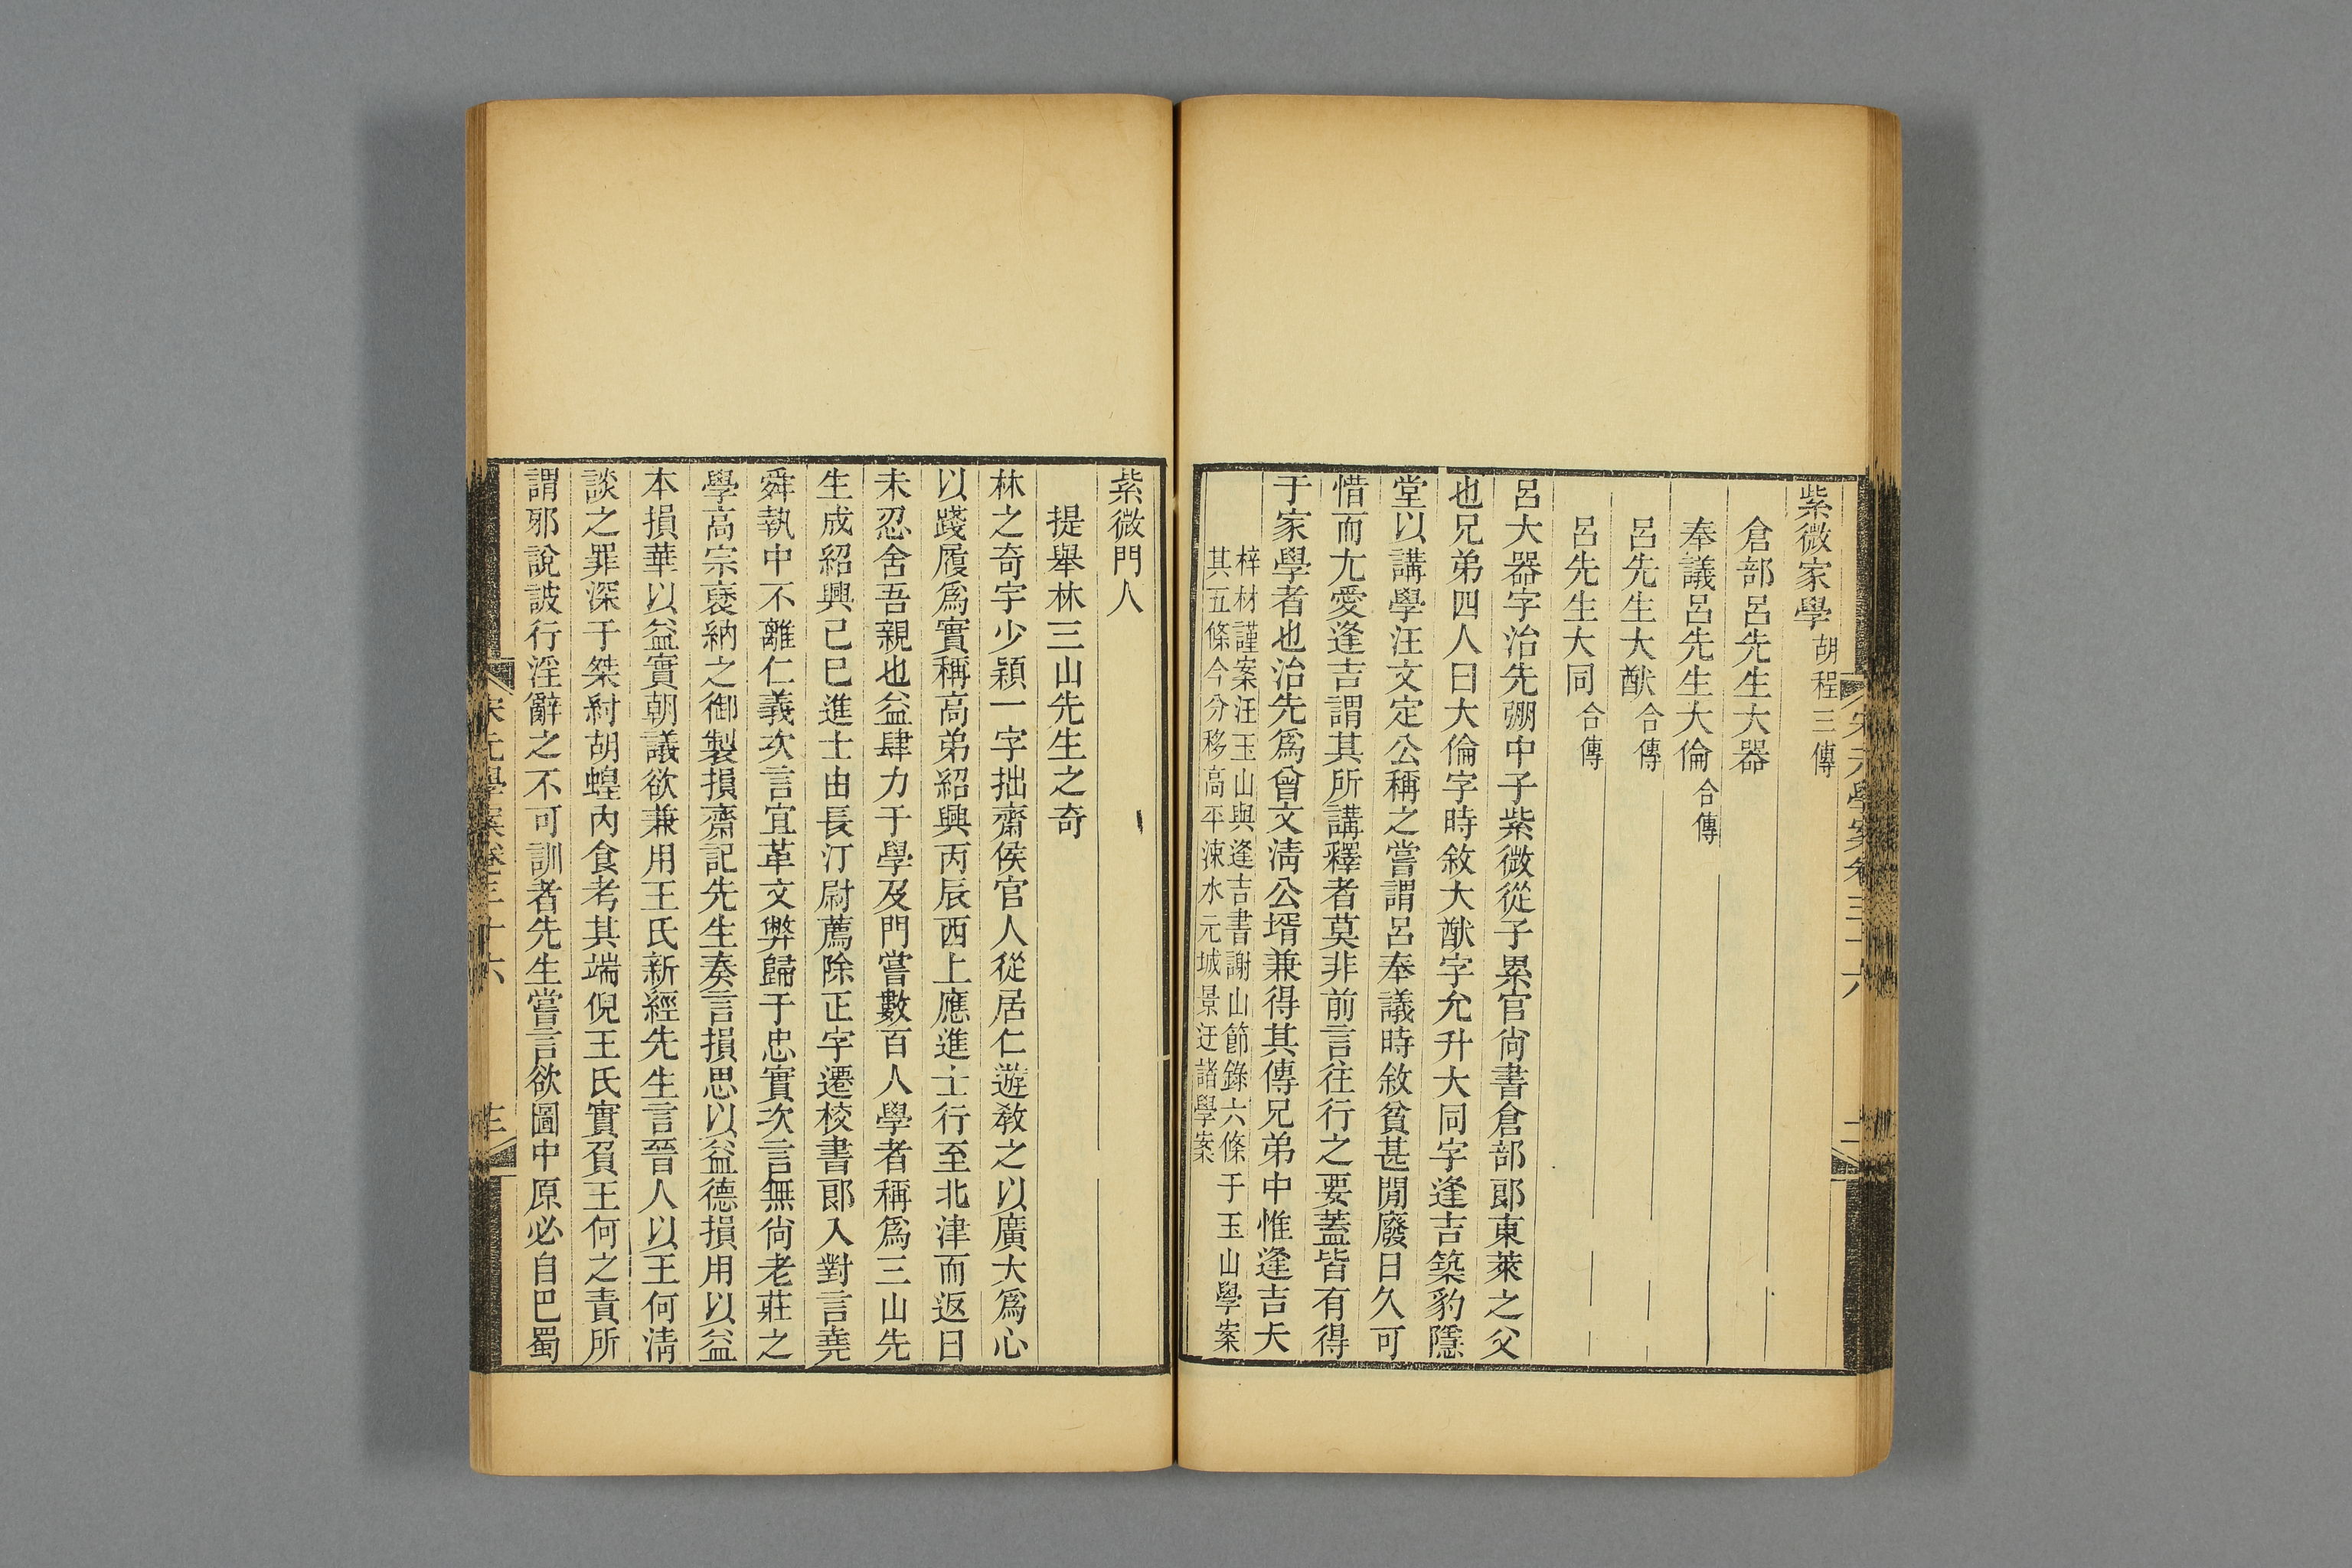 紫微家學胡程三傳
倉部呂先生大器
奉議呂先生大倫合傳
呂先生大猷合傳
呂先生大同合傳
呂大器字治先弸中子紫微從子累官尚書倉部郎東萊之父
也兄弟四人曰大倫字時敘大猷字允升大同字逢吉築豹隱
堂以講學汪文定公稱之嘗謂呂奉議時敘貧甚閒廢日久可
惜而尤愛逢吉謂其所講釋者莫非前言往行之要蓋皆有得
于家學者也治先爲曾文淸公壻兼得其傳兄弟中惟逢吉夭
梓材謹案汪玉山與逢吉書謝山節錄六條于玉山學案
其五條今分移高平涑水元城景迂諸學案
宋元學案卷三十六
紫微門人
提舉林三山先生之奇
林之奇字少穎一字拙齋侯官人從居仁遊敎之以廣大爲心
以踐履爲實稱高弟紹興丙辰西上應進士行至北津而返曰
未忍舍吾親也益肆力于學及門嘗數百人學者稱爲三山先
生成紹興己巳進士由長汀尉薦除正字遷校書郎入對言堯
舜執中不離仁義次言宜革文弊歸于忠實次言無尚老莊之
學高宗襃納之御製損齋記先生奏言損思以益德損用以益
本損華以益實朝議欲兼用王氏新經先生言晉人以王何淸
談之罪深于桀紂胡蝗內食考其端倪王氏實負王何之責所
謂邪說詖行淫辭之不可訓者先生嘗言欲圖中原必自巴蜀
宋元學案卷三十六